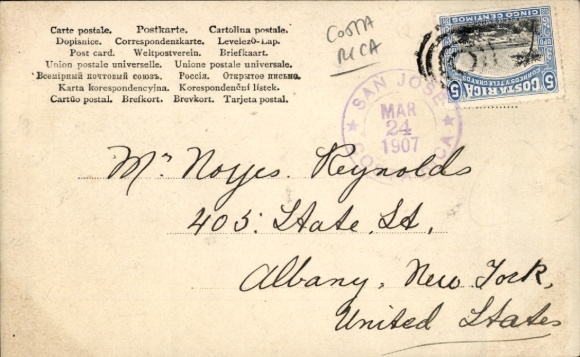 Carte postale. Postkarte. Cartolina postale.
Dopisnice. Correspondenzkarte. Levelező-Lap.
Post card. Weltpostverein. Briefkaart.
Union postale universelle. Unione postale universale.
Всемірный почтовый союзъ. Россія. Открытое письмо.
Karta korespondencyjna. Korespondenční lístek.
Cartão postal. Brefkort. Brevkort. Tarjeta postal.
COSTA
RICA
COSTA RICA
CORREOS Y TELEGRAFOS
CINCO CENTIMOS
5 5
SAN JOSE
MAR
24
1907
COSTA RICA
Mr Noyes Reynolds
405. State St,
Albany, New York,
United States